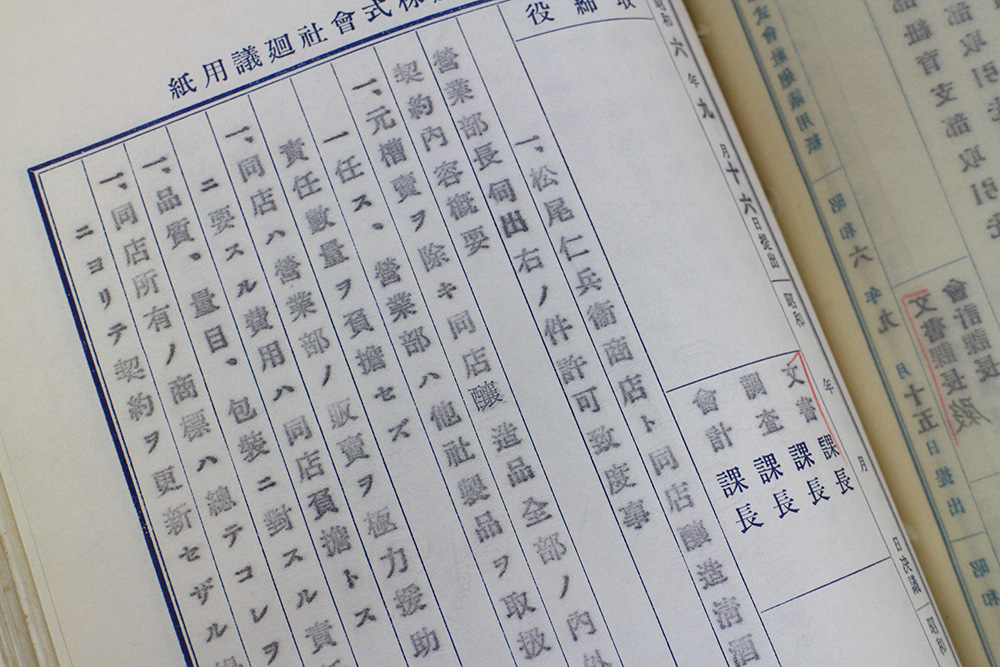 式會社廻議用紙
昭和六年九月十六日提出 昭和 年 月 日決議 昭和
取締役
文書課長
調査課長
課長
會計課長
一、松尾仁兵衞商店ト同店釀造淸酒
營業部長伺出右ノ件許可致度事
契約内容概要
一、元槽賣ヲ除キ同店釀造品全部ノ内外
一任ス、營業部ハ他社製品ヲ取扱
責任數量ヲ負擔セズ
一、同店ハ營業部ノ販賣ヲ極力援助
ニ要スル費用ハ同店負擔トス
一、品質、量目、包裝ニ對スル責
一、同店所有ノ商標ハ總テコレヲ
ニヨリテ契約ヲ更新セザル
部紐育支部取引先
會計課長殿
文書課長
昭和六年九月十五日提出 昭和